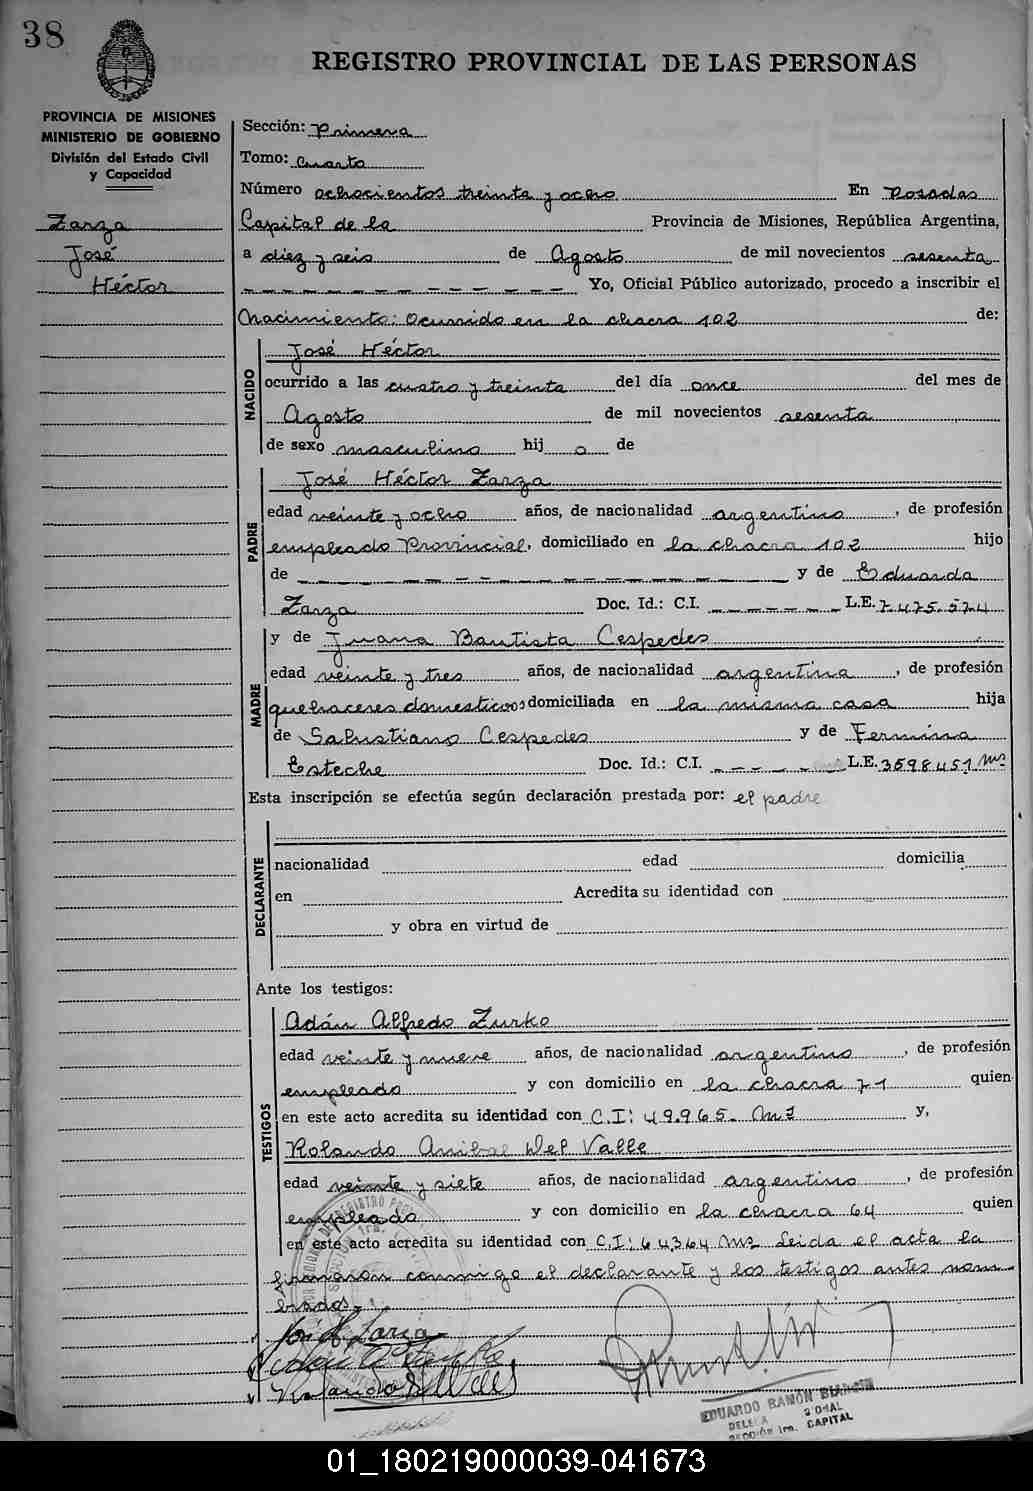 38
REGISTRO PROVINCIAL DE LAS PERSONAS
PROVINCIA DE MISIONES
MINISTERIO DE GOBIERNO
División del Estado Civil
y Capacidad
Zarza
José
Héctor
Sección: Primera
Tomo: Cuarto
Número ochocientos treinta y ocho En Posadas
Capital de la Provincia de Misiones, República Argentina,
a diez y seis de Agosto de mil novecientos sesenta
Yo, Oficial Público autorizado, procedo a inscribir el
Nacimiento: Ocurrido en la chacra 102 de:
NACIDO
José Héctor
ocurrido a las cuatro y treinta del día once del mes de
Agosto de mil novecientos sesenta
de sexo masculino hij o de
PADRE
José Héctor Zarza
edad veinte y ocho años, de nacionalidad argentino, de profesión
empleado Provincial, domiciliado en la chacra 102 hijo
de y de Eduarda
Zarza Doc. Id.: C.I. L.E. 7.475.574
MADRE
y de Juana Bautista Cespedes
edad veinte y tres años, de nacionalidad argentina, de profesión
quehaceres domesticos domiciliada en la misma casa hija
de Salustiano Cespedes y de Fermina
Esteche Doc. Id.: C.I. L.E. 3598451 Ms
Esta inscripción se efectúa según declaración prestada por: el padre
DECLARANTE
nacionalidad edad domicilia
en Acredita su identidad con
y obra en virtud de
Ante los testigos:
TESTIGOS
Adán Alfredo Zurko
edad veinte y nueve años, de nacionalidad argentino, de profesión
empleado y con domicilio en la chacra 71 quien
en este acto acredita su identidad con C.I: 49.965- Ms y,
Rolando Anibal Del Valle
edad veinte y siete años, de nacionalidad argentino, de profesión
empleado y con domicilio en la chacra 64 quien
en este acto acredita su identidad con C.I: 64364 Ms Leida el acta la
firmaron conmigo el declarante y los testigos antes nom-
brados,
José H Zarza
EDUARDO RAMÓN
SECCIÓN 1ra. CAPITAL
01_180219000039-041673